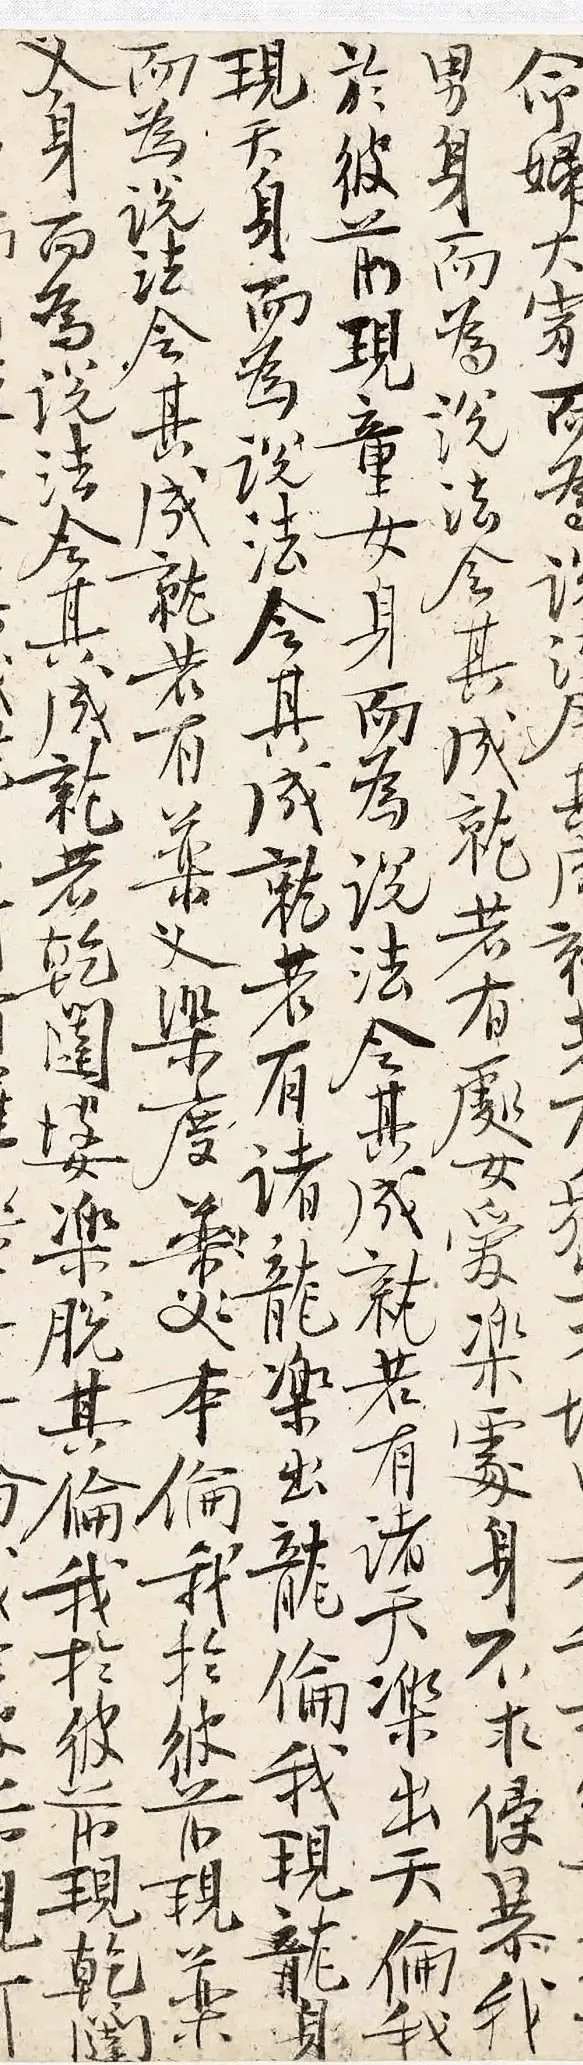 命婦大家而為說法令其成就若
男身而為說法令其成就若有處女愛樂處身不求侵暴我
於彼前現童女身而為說法令其成就若有諸天樂出天倫我
現天身而為說法令其成就若有諸龍樂出龍倫我現龍身
而為說法令其成就若有藥叉樂度藥叉本倫我於彼前現藥
叉身而為說法令其成就若乾闥婆樂脫其倫我於彼前現乾闥